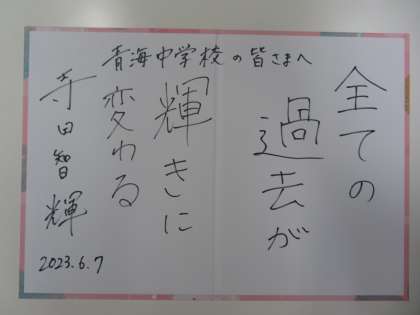 青海中学校の皆さまへ
全ての
過去が
輝きに
変わる
寺田智輝
2023.6.7